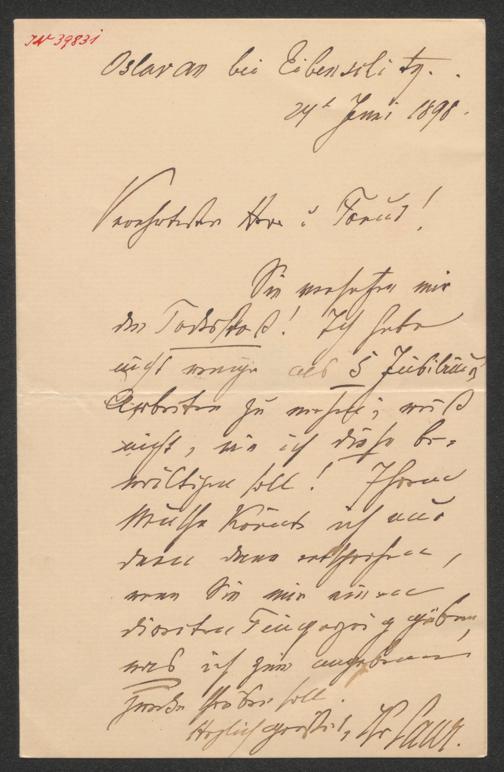 IN 39831
Oslavan bei Eibenschitz.
24t Juni 1898.
Verehrtester Herr u Freund!
Sie versetzen mir
den Todesstoß! Ich habe
nicht weniger als 5 Jubiläums
Arbeiten zu machen; weiß
nicht, wie ich diese be-
wältigen soll! Ihrem
Wunsche könnte ich nur
dann entsprechen,
wenn Sie mir einen
directen Fingerzeig geben,
was ich zum angegebenen
Zwecke schreiben soll.
Herzlich grüßt,